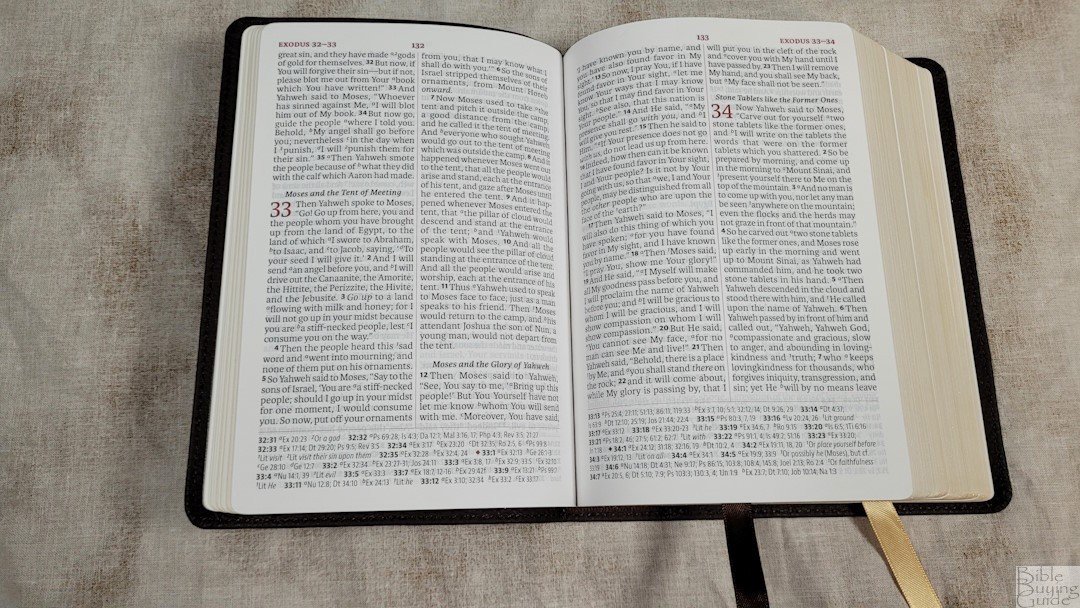 EXODUS 32–33
132
great sin, and they have made gods
of gold for themselves. 32 But now, if
You will forgive their sin—but if not,
please blot me out from Your book
which You have written!" 33 And
Yahweh said to Moses, "Whoever
has sinned against Me, I will blot
him out of My book. 34 But now go,
guide the people where I told you.
Behold, My angel shall go before
you; nevertheless in the day when
I punish, I will punish them for
their sin." 35 Then Yahweh smote
the people because of what they did
with the calf which Aaron had made.
Moses and the Tent of Meeting
33 Then Yahweh spoke to Moses,
"Go! Go up from here, you and
the people whom you have brought
up from the land of Egypt, to the
land of which I swore to Abraham,
to Isaac, and to Jacob, saying, 'To
your seed I will give it.' 2 And I will
send an angel before you, and I will
drive out the Canaanite, the Amorite,
the Hittite, the Perizzite, the Hivite,
and the Jebusite. 3 Go up to a land
flowing with milk and honey; for I
will not go up in your midst because
you are a stiff-necked people, lest I
consume you on the way."
4 Then the people heard this sad
word and went into mourning; and
none of them put on his ornaments.
5 So Yahweh said to Moses, "Say to the
sons of Israel, 'You are a stiff-necked
people; should I go up in your midst
for one moment, I would consume
you. So now, put off your ornaments
from you, that I may know what I
shall do with you.'" 6 So the sons of
Israel stripped themselves of their
ornaments, from Mount Horeb
onward.
7 Now Moses used to take the
tent and pitch it outside the camp,
a good distance from the camp,
and he called it the tent of meeting.
And everyone who sought Yahweh
would go out to the tent of meeting
which was outside the camp. 8 And it
happened whenever Moses went out
to the tent, that all the people would
arise and stand, each at the entrance
of his tent, and gaze after Moses until
he entered the tent. 9 And it hap-
pened whenever Moses entered the
tent, that the pillar of cloud would
descend and stand at the entrance
of the tent; and Yahweh would
speak with Moses. 10 And all the
people would see the pillar of cloud
standing at the entrance of the tent.
And all the people would arise and
worship, each at the entrance of his
tent. 11 Thus Yahweh used to speak
to Moses face to face, just as a man
speaks to his friend. Then Moses
would return to the camp, and his
attendant Joshua the son of Nun, a
young man, would not depart from
the tent.
Moses and the Glory of Yahweh
12 Then Moses said to Yahweh,
"See, You say to me, 'Bring up this
people!' But You Yourself have not
let me know whom You will send
with me. Moreover, You have said,
133
EXODUS 33–34
'I have known you by name, and
you have also found favor in My
sight.' 13 So now, I pray You, if I have
found favor in Your sight, let me
know Your ways that I may know
You, so that I may find favor in Your
sight. See also, that this nation is
Your people." 14 And He said, "My
presence shall go with you, and I
will give you rest." 15 Then he said to
Him, "If Your presence does not go
with us, do not lead us up from here.
16 indeed, how then can it be known
that I have found favor in Your sight,
I and Your people? Is it not by Your
going with us, so that we, I and Your
people, may be distinguished from all
the other people who are upon the
face of the earth?"
17 Then Yahweh said to Moses, "I
will also do this thing of which you
have spoken; for you have found
favor in My sight, and I have known
you by name." 18 Then Moses said,
"I pray You, show me Your glory!"
19 And He said, "I Myself will make
all My goodness pass before you, and
I will proclaim the name of Yahweh
before you; and I will be gracious to
whom I will be gracious, and I will
show compassion on whom I will
show compassion." 20 But He said,
"You cannot see My face, for no
man can see Me and live!" 21 Then
Yahweh said, "Behold, there is a place
by Me, and you shall stand there on
the rock; 22 and it will come about,
while My glory is passing by, that I
will put you in the cleft of the rock
and cover you with My hand until I
have passed by. 23 Then I will remove
My hand, and you shall see My back,
but My face shall not be seen."
Stone Tablets like the Former Ones
34 Now Yahweh said to Moses,
"Carve out for yourself two
stone tablets like the former ones,
and I will write on the tablets the
words that were on the former
tablets which you shattered. 2 So be
prepared by morning, and come up
in the morning to Mount Sinai, and
present yourself there to Me on the
top of the mountain. 3 And no man is
to come up with you, nor let any man
be seen anywhere on the mountain;
even the flocks and the herds may
not graze in front of that mountain."
4 So he carved out two stone tablets
like the former ones, and Moses rose
up early in the morning and went
up to Mount Sinai, as Yahweh had
commanded him, and he took two
stone tablets in his hand. 5 Then
Yahweh descended in the cloud and
stood there with him, and He called
upon the name of Yahweh. 6 Then
Yahweh passed by in front of him and
called out, "Yahweh, Yahweh God,
compassionate and gracious, slow
to anger, and abounding in loving-
kindness and truth; 7 who keeps
lovingkindness for thousands, who
forgives iniquity, transgression, and
sin; yet He will by no means leave
Bible
Buying
Guide